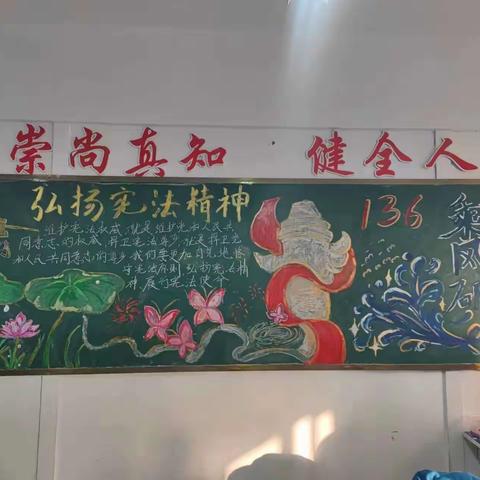 崇尚真知 健全人
弘扬宪法精神
维护宪法权威,就是维护党和人民共
同意志的权威,捍卫宪法尊严,就是捍卫党
和人民共同意志的尊严,我们要更加自觉地恪
守宪法原则,弘扬宪法精
神,履行宪法使命
136
乘风破